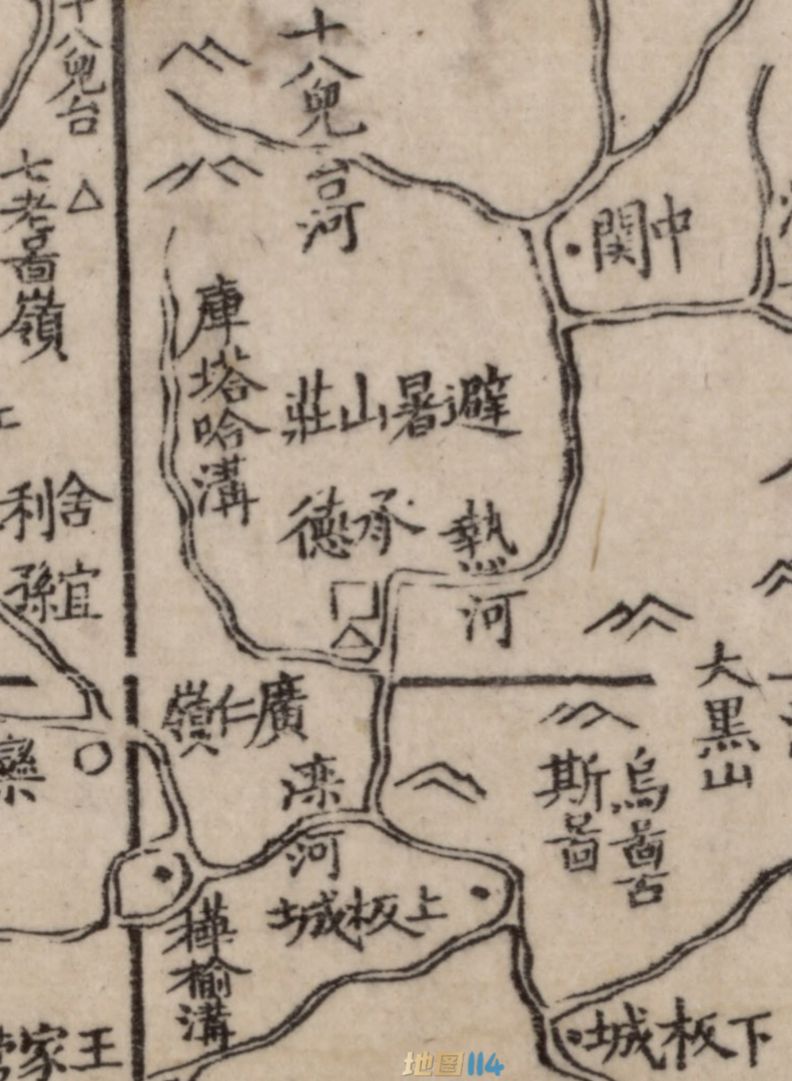 十八兒台
七老啚嶺
十八兒台河
中関
庫塔哈溝
避暑山莊
承德
熱河
舍利
宜孫
大黒山
廣仁嶺
灤河
烏啚古
斯啚
上板城
樺榆溝
下板城
王家
地图114